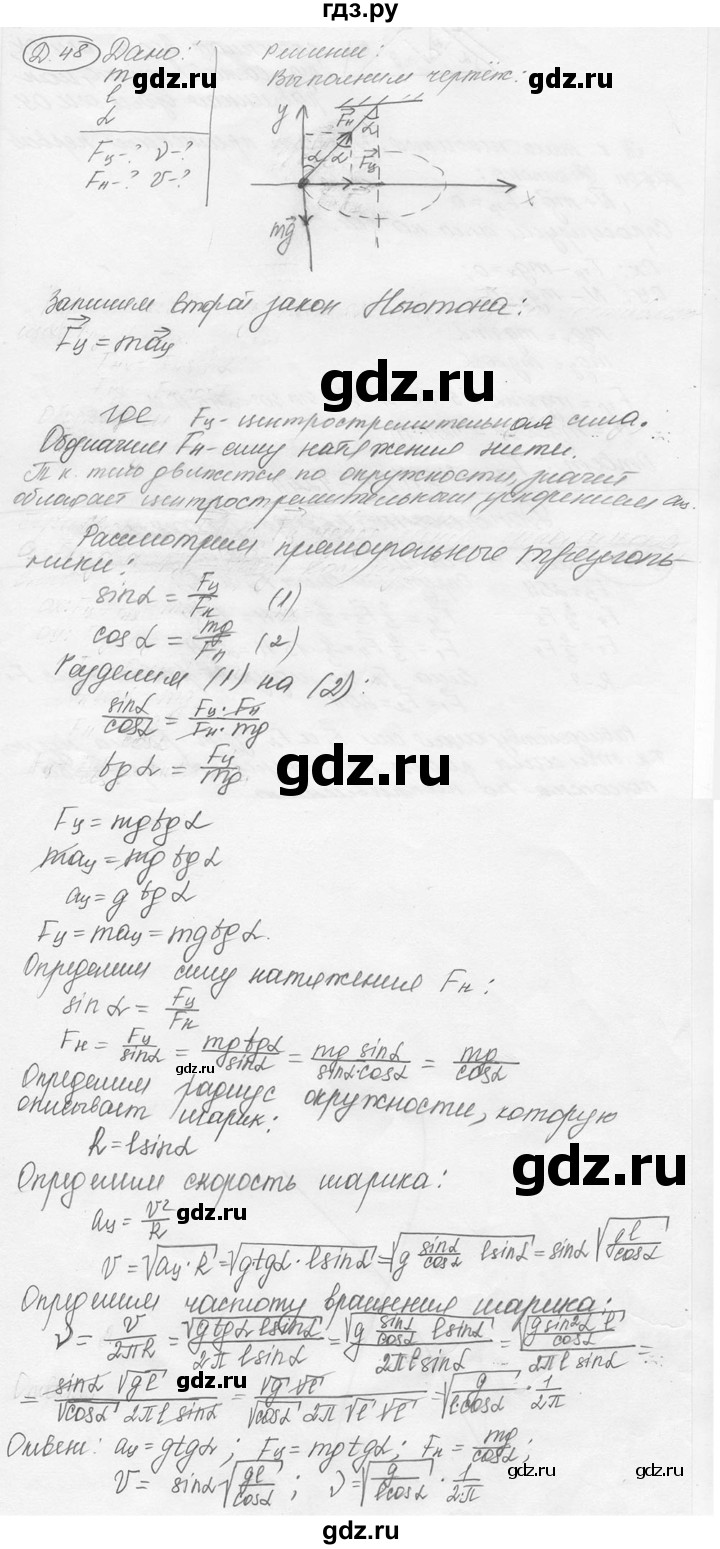 гдз.ру
Д. 48 Дано: Решение:
m Выполним чертёж:
ℓ
α
Fц-? v-?
Fн-? ν-?
y Fн α α α Fц x mg
Запишем второй закон Ньютона:
Fц = maц
gdz.ru
где Fц - центростремительная сила.
Обозначим Fн - силу натяжения нити.
Т.к. тело движется по окружности, значит
обладает центростремительным ускорением aц.
Рассмотрим прямоугольные треуголь-
ники:
sinα = Fц/Fн (1)
cosα = mg/Fн (2)
Разделим (1) на (2):
sinα/cosα = Fц·Fн/Fн·mg
tgα = Fц/mg
gdz.ru
Fц = mgtgα
maц = mgtgα
aц = g tgα
Fц = maц = mgtgα.
Определим силу натяжения Fн:
sinα = Fц/Fн
Fн = Fц/sinα = mgtgα/sinα = mg sinα/sinα·cosα = mg/cosα
gdz.ru
Определим радиус окружности, которую
описывает шарик:
R = ℓsinα
gdz.ru
Определим скорость шарика:
aц = v²/R
gdz.ru
v = √aц·R = √gtgα·ℓsinα = √g sinα/cosα ℓsinα = sinα √gℓ/cosα
Определим частоту вращения шарика:
ν = v/2πR = √gtgα ℓsinα/2π ℓsinα = √g sinα/cosα ℓsinα/2πℓsinα = √g sin²α ℓ/cosα/2πℓ sinα =
gdz.ru
= sinα √gℓ/√cosα 2πℓ sinα = √g √ℓ/√cosα 2π √ℓ √ℓ = √g/ℓcosα · 1/2π
Ответ: aц = gtgα; Fц = mgtgα; Fн = mg/cosα;
v = sinα √gℓ/cosα; ν = √g/ℓcosα · 1/2π
gdz.ru gdz.ru gdz.ru
gdz.ru